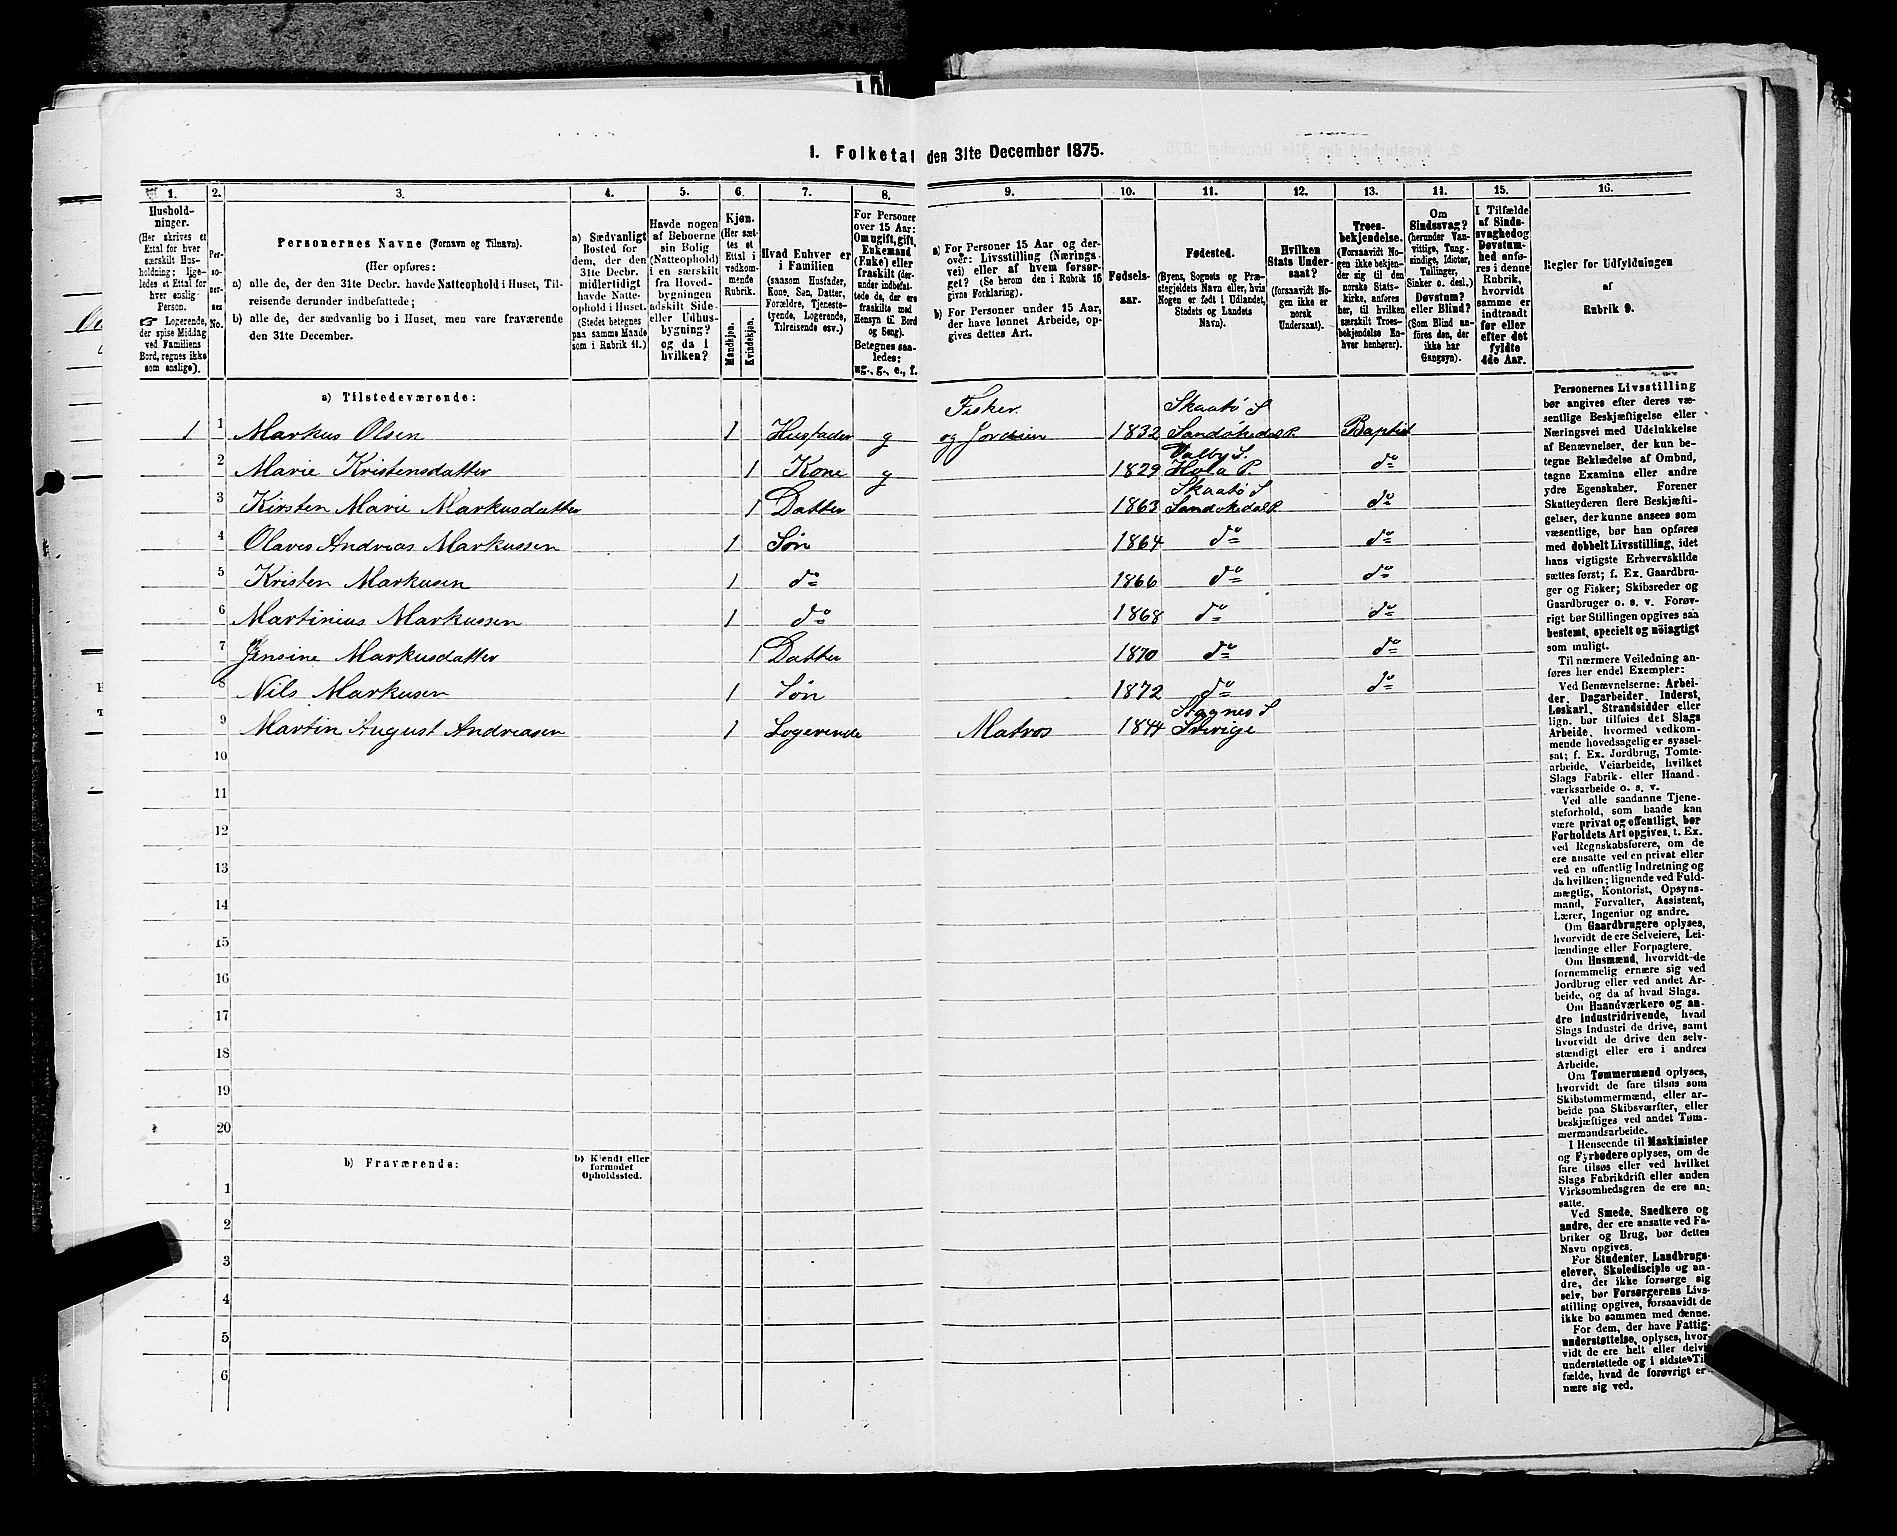 1. Folketal den 31te December 1875.
1.
2.
3.
4.
5.
6.
7.
8.
9.
10.
11.
12.
13.
14.
15.
16.
Hushold-
ninger.
(Her skrives et
Ettal for hver
særskilt Hus-
holdning; lige-
ledes et Ettal for
hver enslig
Person.
☞ Logerende,
der spise Middag
ved Familiens
Bord, regnes ikke
som enslige).
Per-
so-
ner-
nes
No.
Personernes Navne (Fornavn og Tilnavn).
(Her opføres:
a) alle de, der den 31te Decbr. havde Natteophold i Huset, Til-
reisende derunder indbefattede;
b) alle de, der sædvanlig bo i Huset, men vare fraværende
den 31te December.
a) Sædvanligt
Bosted for
dem, der den
31te Decbr.
midlertidigt
havde Natte-
ophold i Huset.
(Stedet betegnes
paa samme Maade
som i Rubrik 11.)
Havde nogen
af Beboerne
sin Bolig
(Natteophold)
i en særskilt
fra Hoved-
bygningen
adskilt Side-
eller Udhus-
bygning?
og da i
hvilken?
Kjøn.
(Her sæt-
tes et
Ettal i
vedkom-
mende
Rubrik.
Mandkjøn.
Kvindekjøn.
Hvad Enhver er
i Familien
(saasom Husfader,
Kone, Søn, Datter,
Forældre, Tjeneste-
tyende, Logerende,
Tilreisende osv.)
For Personer
over 15 Aar:
Om ugift, gift,
Enkemand
(Enke) eller
fraskilt (der-
under indbefat-
tede de, der ere
fraskilte med
Hensyn til Bord
og Seng).
Betegnes saa-
ledes:
ug., g., e., f.
a) For Personer 15 Aar og der-
over: Livsstilling (Nærings-
vei) eller af hvem forsør-
get? (Se herom den i Rubrik 16
givne Forklaring).
b) For Personer under 15 Aar,
der have lønnet Arbeide, op-
gives dettes Art.
Fødsels-
aar.
Fødested.
(Byens, Sognets og Præ-
stegjeldets Navn eller, hvis
Nogen er født i Udlandet,
Stedets og Landets
Navn).
Hvilken
Stats Under-
saat?
(forsaavidt No-
gen ikke er
norsk
Undersaat).
Troes-
bekjendelse.
(Forsaavidt No-
gen ikke bekjen-
der sig til den
norske Stats-
kirke, anføres
her, til hvilken
særskilt Troes-
bekjendelse En-
hver henhører).
Om
Sindssvag?
(herunder Van-
vittige, Tung-
sindige, Idioter,
Tullinger,
Sinker o. desl.)
Døvstum?
eller Blind?
(Som Blind an-
føres den, der
ikke har
Gangsyn).
I Tilfælde
af Sinds-
svaghed og
Døvstum-
hed anfø-
res i denne
Rubrik,
hvorvidt
samme er
indtraadt
før eller
efter det
fyldte
4de Aar.
Regler for Udfyldningen
af
Rubrik 9.
a) Tilstedeværende:
1 1 Markus Olsen 1 Husfader g Fisker og Jordeier 1832 Skaatø S Sandøkedal P. Baptist
2 Marie Kristensdatter 1 Kone g 1829 Valby S. Hola P. do
3 Kirsten Marie Markusdatter 1 Datter 1863 Skaatø S Sandøkedal P. do
4 Olaves Andreas Markussen 1 Søn 1864 do do
5 Kristen Markusen 1 do 1866 do do
6 Martinius Markussen 1 do 1868 do do
7 Jensine Markusdatter 1 Datter 1870 do do
8 Nils Markusen 1 Søn 1872 do do
9 Martin August Andreasen 1 Logerende Matros 1844 Stagnes S Sverige
10
11
12
13
14
15
16
17
18
19
20
b) Fraværende:
b) Kjendt eller
formodet
Opholdssted.
1
2
3
4
5
6
Personernes Livsstilling
bør angives efter deres væ-
sentlige Beskjæftigelse eller
Næringsvei med Udelukkelse
af Benævnelser, der kun be-
tegne Beklædelse af Ombud,
tagne Examina eller andre
ydre Egenskaber. Forener
Skatteyderen flere Beskjæfti-
gelser, der kunne ansees som
væsentlige, bør han opføres
med dobbelt Livsstilling, idet
hans vigtigste Erhvervskilde
sættes først; f. Ex. Gaardbru-
ger og Fisker; Skibsreder og
Gaardbruger o. s. v. Forøv-
rigt bør Stillingen opgives saa
bestemt, specielt og nöiagtigt
som muligt.
Til nærmere Veiledning an-
føres her endel Exempler:
Ved Benævnelserne: Arbei-
der, Dagarbeider, Inderst,
Løskarl, Strandsidder eller
lign. bør tilføies det Slags
Arbeide, hvormed vedkom-
mende hovedsagelig er syssel-
sat; f. Ex. Jordbrug, Tomte-
arbeide, Veiarbeide, hvilket
Slags Fabrik- eller Haand-
værksarbeide o. s. v.
Ved alle saadanne Tjene-
steforhold, som baade kan
være privat og offentligt, bør
Forholdets Art opgives, t. Ex.
ved Regnskabsførere, om de
ere ansatte ved en privat eller
ved en offentlig Indretning og
da hvilken; lignende ved Fuld-
mægtig, Kontorist, Opsyns-
mand, Forvalter, Assistent,
Lærer, Ingeniør og andre.
Om Gaardbrugere oplyses,
hvorvidt de ere Selveiere, Lei-
lændinge eller Forpagtere.
Om Husmænd, hvorvidt de
fornemmelig ernære sig ved
Jordbrug eller ved andet Ar-
beide, og da af hvad Slags.
Om Haandværkere og an-
dre Industridrivende, hvad
Slags Industri de drive, samt
hvorvidt de drive den selv-
stændigt eller ere i andres
Arbeide.
Om Tømmermænd oplyses,
hvorvidt de fare tilsøs som
Skibstømmermænd, eller ar-
beide paa Skibsværfter, eller
beskjæftiges ved andet Tøm-
mermandsarbeide.
I Henseende til Maskinister
og Fyrbødere oplyses, om de
fare tilsøs eller ved hvilket
Slags Fabrikdrift eller anden
Virksomhedsgren de ere an-
satte.
Ved Smede, Snedkere og
andre, der ere ansatte ved Fa-
briker og Brug, bør dettes
Navn opgives.
For Studenter, Landbrugs-
elever, Skoledisciple og an-
dre, der ikke forsørge sig
selv, bør Forsørgerens Livs-
stilling opgives, forsaavidt de
ikke bo sammen med denne.
For dem, der have Fattig-
understøttelse, oplyses, hvor-
vidt de ere helt eller delvis
understøttede og i sidste Til-
fælde, hvad de forøvrigt er-
nære sig ved.